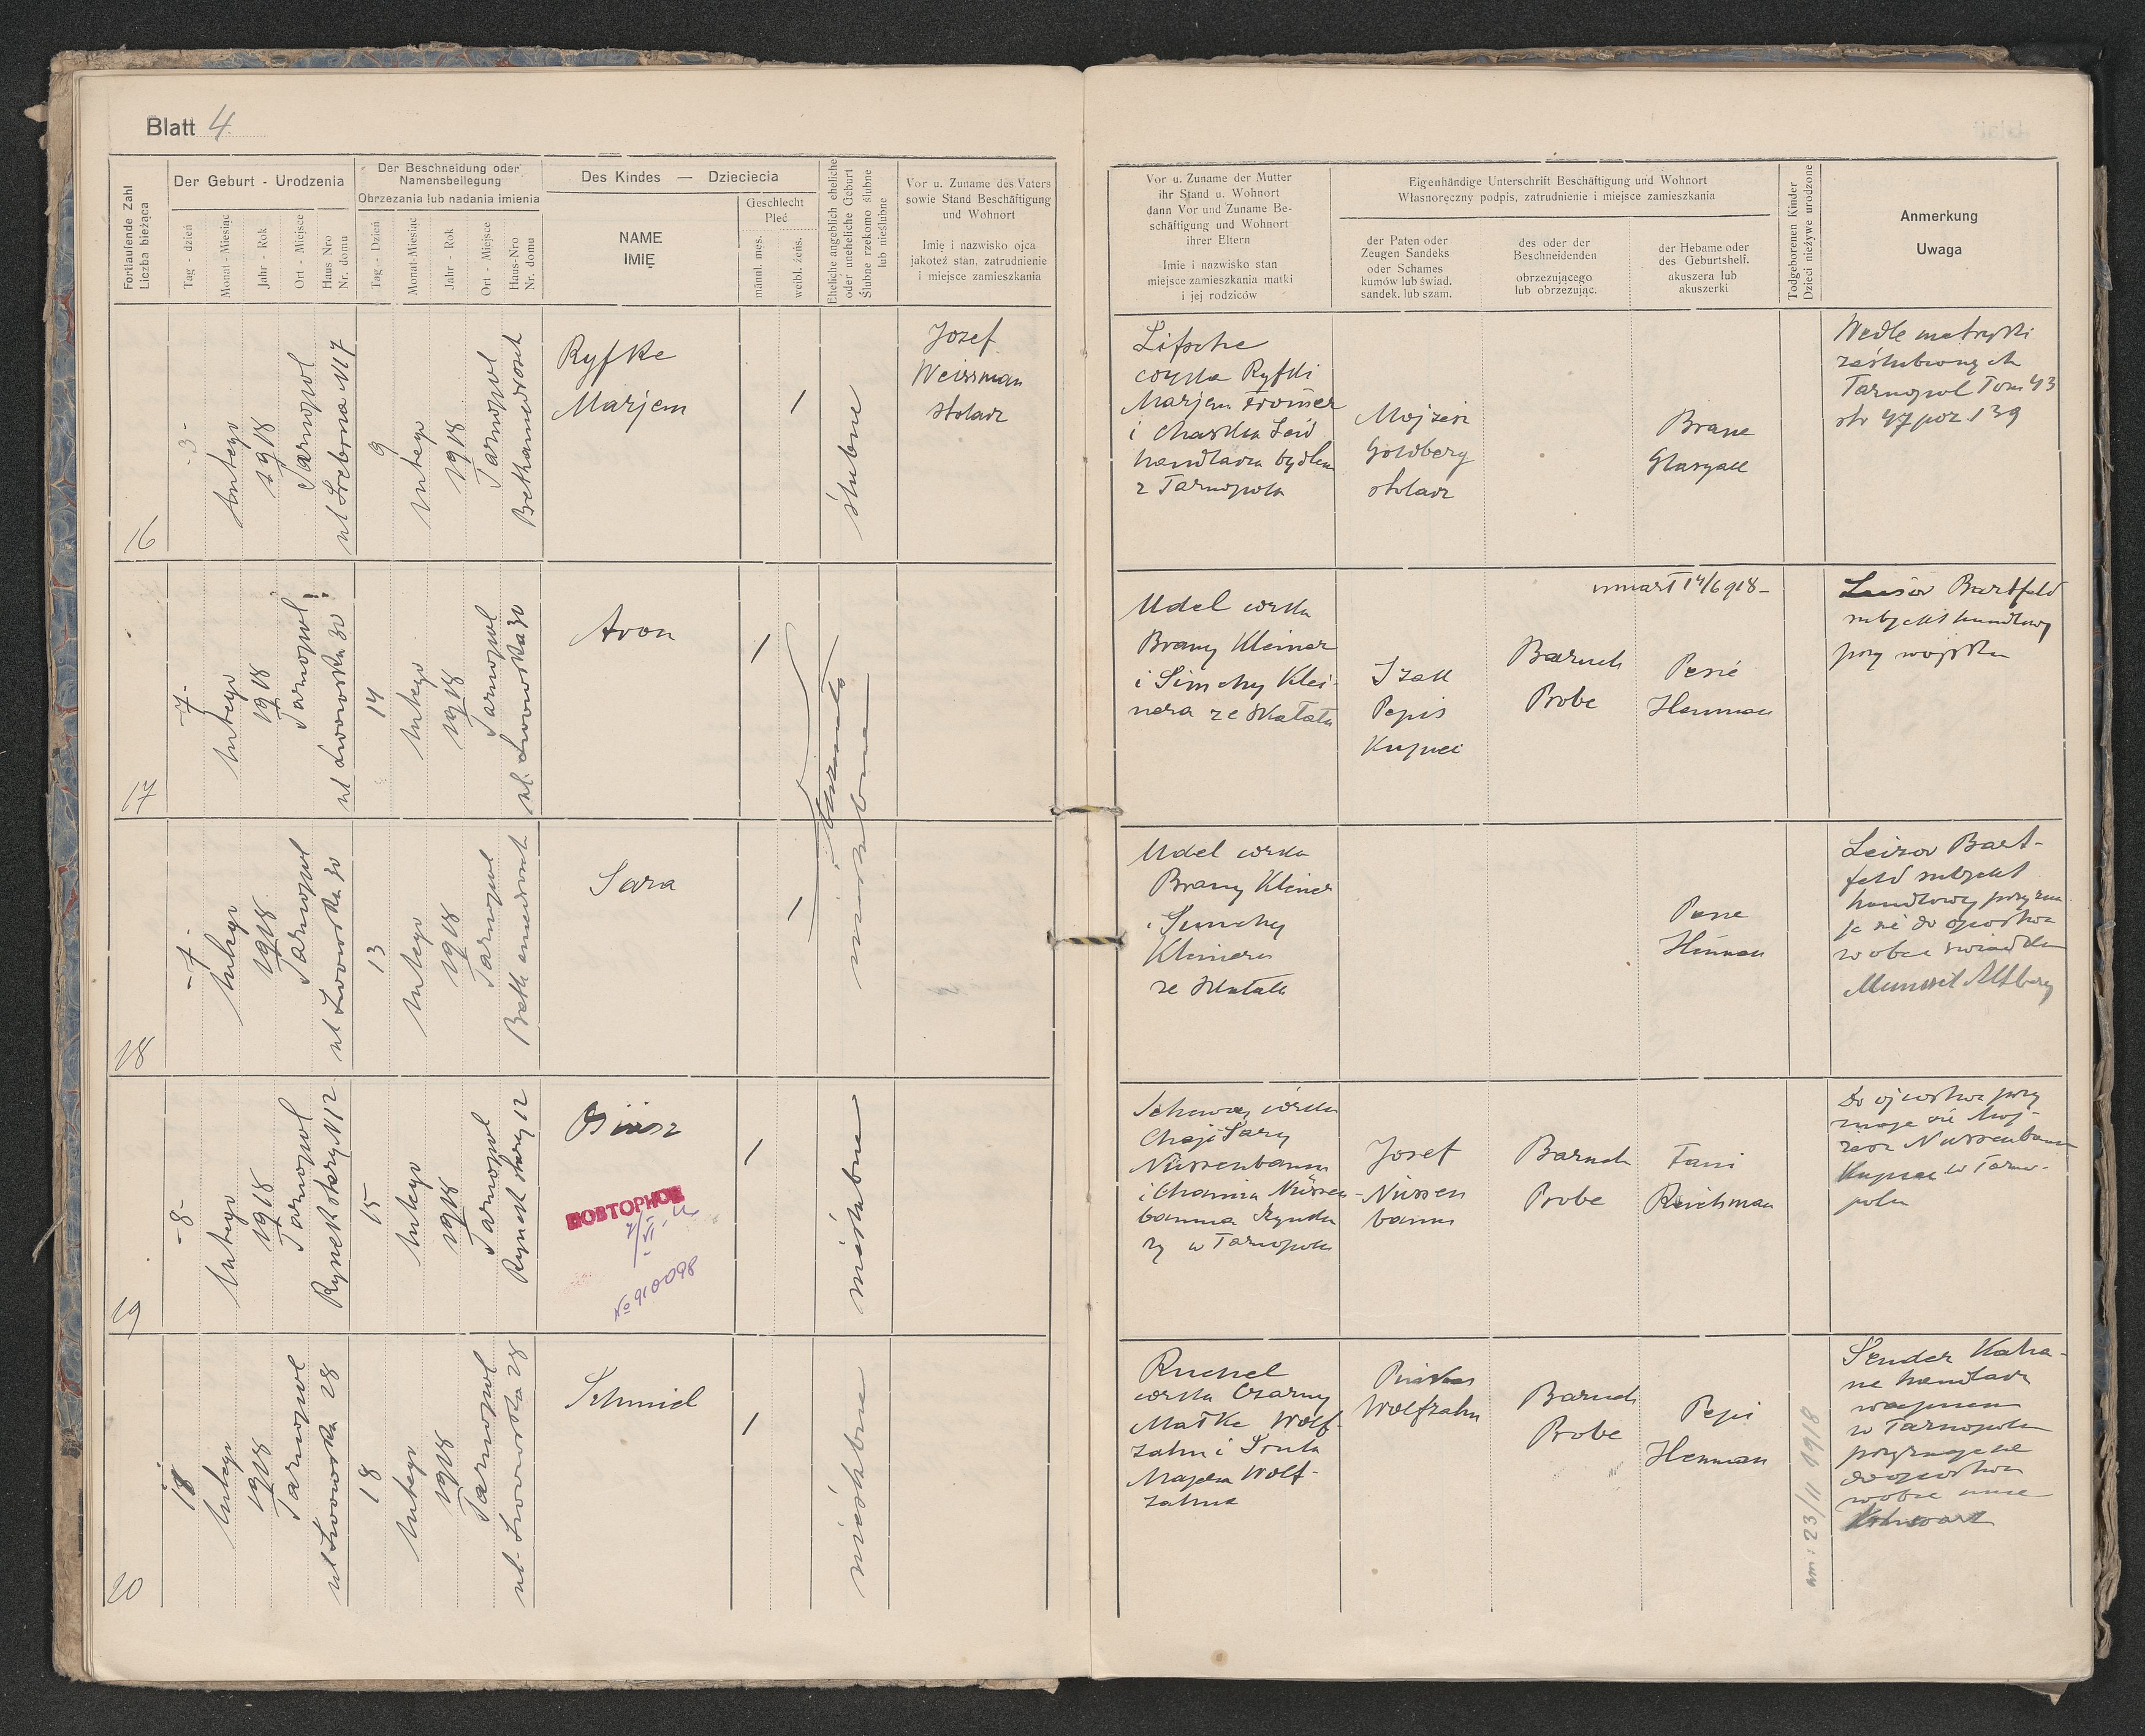 Blatt 4
Fortlaufende Zahl
Liczba bieżąca
Der Geburt - Urodzenia
Tag - dzień
Monat - Miesiąc
Jahr - Rok
Ort - Miejsce
Haus Nro
Nr. domu
Der Beschneidung oder
Namensbeilegung
Obrzezania lub nadania imienia
Tag - Dzień
Monat-Miesiąc
Jahr - Rok
Ort - Miejsce
Haus-Nro
Nr. domu
Des Kindes — Dzieciecia
NAME
IMIĘ
Geschlecht
Płeć
männl. męs.
weibl. żeńs.
Eheliche angeblich eheliche
oder uneheliche Geburt
Ślubne rzekomo ślubne
lub nieślubne
Vor u. Zuname des Vaters
sowie Stand Beschäftigung
und Wohnort
Imię i nazwisko ojca
jakoteż stan, zatrudnienie
i miejsce zamieszkania
Vor u. Zuname der Mutter
ihr Stand u. Wohnort
dann Vor und Zuname Be-
schäftigung und Wohnort
ihrer Eltern
Imie i nazwisko stan
miejsce zamieszkania matki
i jej rodziców
Eigenhändige Unterschrift Beschäftigung und Wohnort
Własnoręczny podpis, zatrudnienie i miejsce zamieszkania
der Paten oder
Zeugen Sandeks
oder Schames
kumów lub świad.
sandek. lub szam.
des oder der
Beschneidenden
obrzezującego
lub obrzezując.
der Hebame oder
des Geburtshelf.
akuszera lub
akuszerki
Todgeborenen Kinder
Dzieci nieżywe urodzone
Anmerkung
Uwaga
16
-3-
lutego
1918
Tarnopol
ul Srebrna N17
9
lutego
1918
Tarnopol
Ryfke
Marjem
ślubne
Jozef
Weissman
stolarz
Lifsche
córka Ryfki
Marjem
i Chaskla
handlarza bydłem
z Tarnopola
Mojżesz
Goldberg
stolarz
Brane
Glasgall
Wedle metryki
zaślubionych
Tarnopol Tom 43
str 47 poz 139
17
-7-
lutego
1918
Tarnopol
ul Lwowska 30
14
lutego
1918
Tarnopol
ul. Lwowska 30
Aron
nieślubne
Udel córka
Brany Kleiner
i Simchy Klei-
nera ze Skałatu
Izak
Pepis
Kupiec
Baruch
Probe
umarł 14/6 918-
Henman
Leisor Bartfeld
subjekt handlowy
przy wojsku
18
-7-
lutego
1918
Tarnopol
ul Lwowska 30
13
lutego
1918
Tarnopol
Sara
Udel córka
Brany Kleiner
i Simchy
Kleinera
ze Skałatu
Henman
Leisor Bart-
feld subjekt
handlowy przyzna
je się do ojcostwa
wobec świadka
19
-8-
lutego
1918
Tarnopol
Rynek stary N12
15
lutego
1918
Tarnopol
Rynek stary 12
ПОВТОРНОЕ
№ 910098
nieślubne
córka
Chaji Sary
Nussenbaum
i Chaima Nussen-
bauma
w Tarnopolu
Josef
Nussen
baum
Baruch
Probe
Fani
Reichman
Do ojcostwa przy
znaje się Moj-
żesz Nussenbaum
Kupiec w Tarno-
polu
20
18
lutego
1918
Tarnopol
ul Lwowska 28
18
lutego
1918
Tarnopol
ul. Lwowska 28
Schmiel
nieślubne
Ruchel
córka Czarny
Matke Wolf-
zahn i Srula
Majera Wolf-
zahna
Pinkas
Wolfzahn
Baruch
Probe
Pepi
Henman
um: 23/11 1918
Sender Kaha-
ne handlarz
w Tarnopolu
przyznaje się
do ojcostwa
wobec